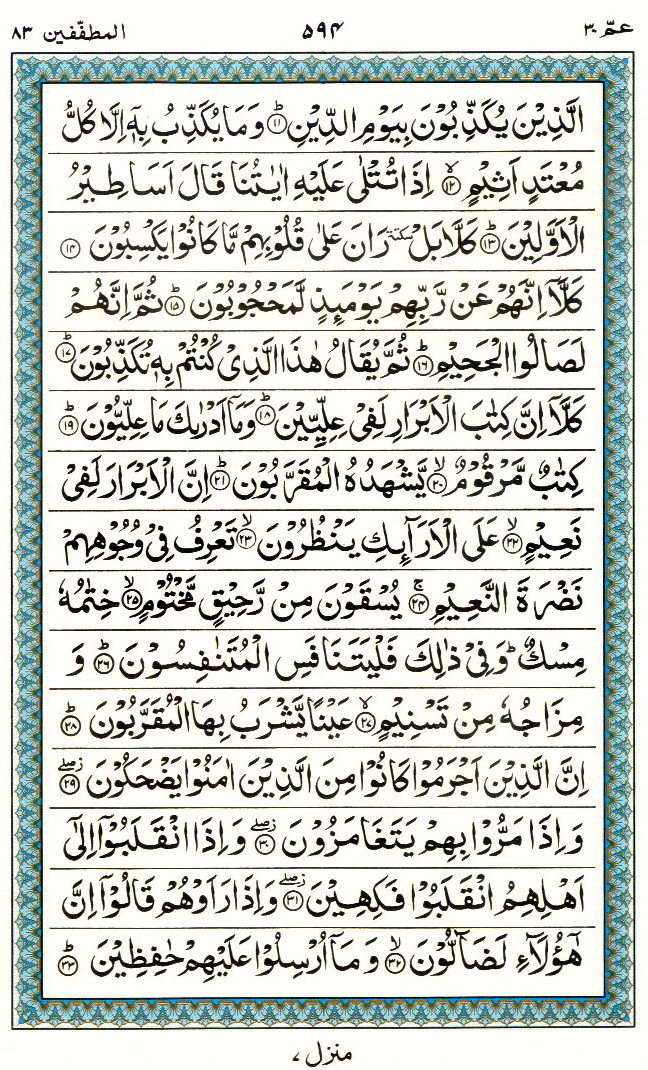 عمّ ٣٠ ٥٩٤ المطفّفين ٨٣
الَّذِيْنَ يُكَذِّبُوْنَ بِيَوْمِ الدِّيْنِ ؕ‏ ﴿۱۱﴾ وَمَا يُكَذِّبُ بِهٖۤ اِلَّا كُلُّ
مُعْتَدٍ اَثِيْمٍ ۙ‏ ﴿۱۲﴾ اِذَا تُتْلٰى عَلَيْهِ اٰيٰتُنَا قَالَ اَسَاطِيْرُ
الْاَوَّلِيْنَ ؕ‏ ﴿۱۳﴾ كَلَّا بَلْ سكتة رَانَ عَلٰى قُلُوْبِهِمْ مَّا كَانُوْا يَكْسِبُوْنَ ﴿۱۴﴾
كَلَّاۤ اِنَّهُمْ عَنْ رَّبِّهِمْ يَوْمَئِذٍ لَّمَحْجُوْبُوْنَ ؕ‏ ﴿۱۵﴾ ثُمَّ اِنَّهُمْ
لَصَالُوا الْجَحِيْمِ ؕ‏ ﴿۱۶﴾ ثُمَّ يُقَالُ هٰذَا الَّذِىْ كُنْتُمْ بِهٖ تُكَذِّبُوْنَ ؕ‏ ﴿۱۷﴾
كَلَّاۤ اِنَّ كِتٰبَ الْاَبْرَارِ لَفِىْ عِلِّيِّيْنَ ؕ‏ ﴿۱۸﴾ وَمَاۤ اَدْرٰٮكَ مَا عِلِّيُّوْنَ ؕ‏ ﴿۱۹﴾
كِتٰبٌ مَّرْقُوْمٌ ۙ‏ ﴿۲۰﴾ يَّشْهَدُهُ الْمُقَرَّبُوْنَ ؕ‏ ﴿۲۱﴾ اِنَّ الْاَبْرَارَ لَفِىْ
نَعِيْمٍ ۙ‏ ﴿۲۲﴾ عَلَى الْاَرَآئِكِ يَنْظُرُوْنَ ۙ‏ ﴿۲۳﴾ تَعْرِفُ فِىْ وُجُوْهِهِمْ
نَضْرَةَ النَّعِيْمِ ۚ‏ ﴿۲۴﴾ يُسْقَوْنَ مِنْ رَّحِيْقٍ مَّخْتُوْمٍ ۙ‏ ﴿۲۵﴾ خِتٰمُهٗ
مِسْكٌ ؕ وَفِىْ ذٰلِكَ فَلْيَتَنَافَسِ الْمُتَنٰفِسُوْنَ ؕ‏ ﴿۲۶﴾ وَ
مِزَاجُهٗ مِنْ تَسْنِيْمٍ ۙ‏ ﴿۲۷﴾ عَيْنًا يَّشْرَبُ بِهَا الْمُقَرَّبُوْنَ ؕ‏ ﴿۲۸﴾
اِنَّ الَّذِيْنَ اَجْرَمُوْا كَانُوْا مِنَ الَّذِيْنَ اٰمَنُوْا يَضْحَكُوْنَ ۖ‏ ﴿۲۹﴾
وَاِذَا مَرُّوْا بِهِمْ يَتَغَامَزُوْنَ ۖ‏ ﴿۳۰﴾ وَاِذَا انْقَلَبُوْۤا اِلٰٓى
اَهْلِهِمُ انْقَلَبُوْا فَكِهِيْنَ ۖ‏ ﴿۳۱﴾ وَاِذَا رَاَوْهُمْ قَالُوْۤا اِنَّ
هٰٓؤُلَآءِ لَضَآلُّوْنَ ۙ‏ ﴿۳۲﴾ وَمَاۤ اُرْسِلُوْا عَلَيْهِمْ حٰفِظِيْنَ ؕ‏ ﴿۳۳﴾
منزل ۷